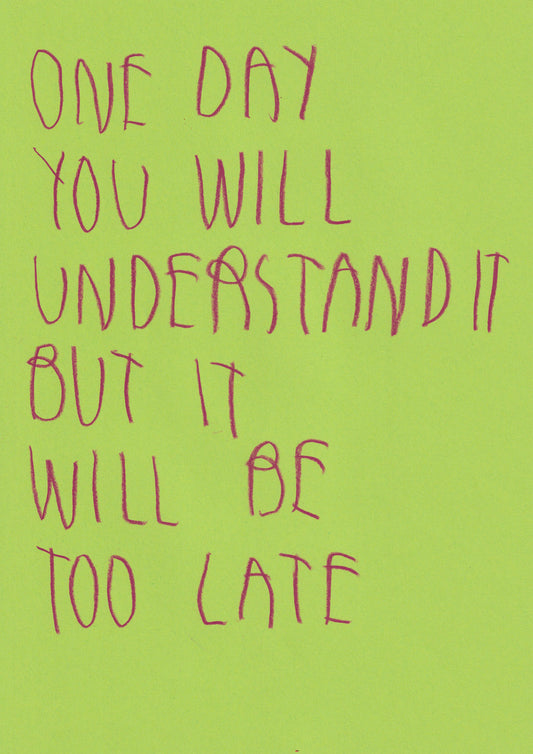 ONE DAY
YOU WILL
UNDERSTAND IT
BUT IT
WILL BE
TOO LATE